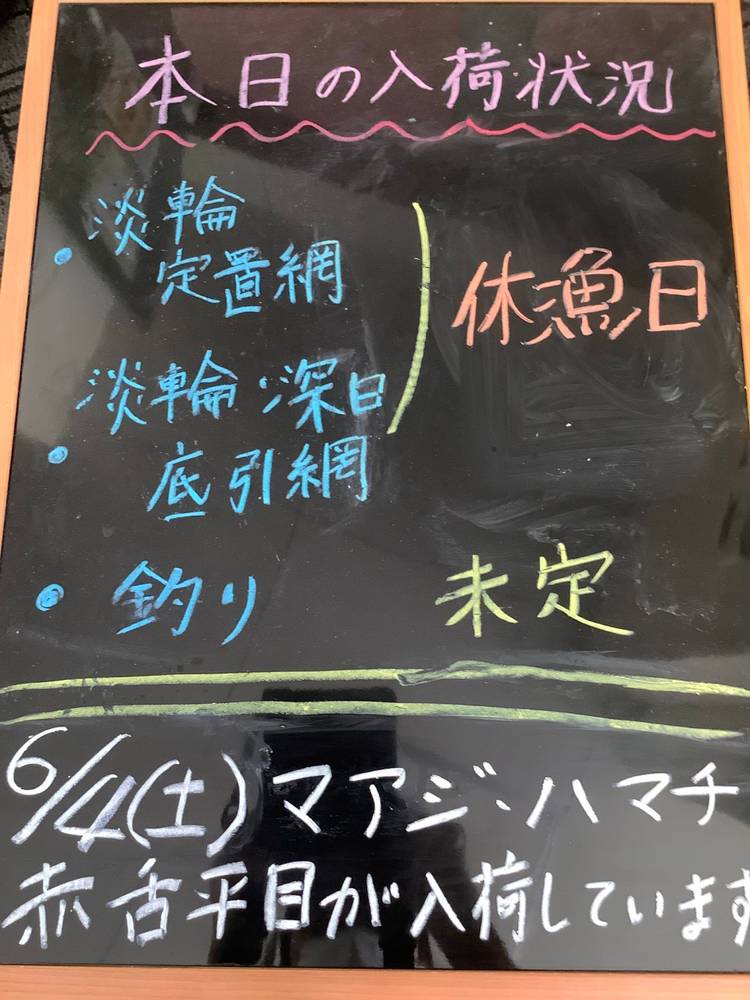 本日の入荷状況
・淡輪
定置網
休漁日
・淡輪・深日
底引網
・釣り 未定
6/4(土)マアジ・ハマチ
赤舌平目が入荷しています